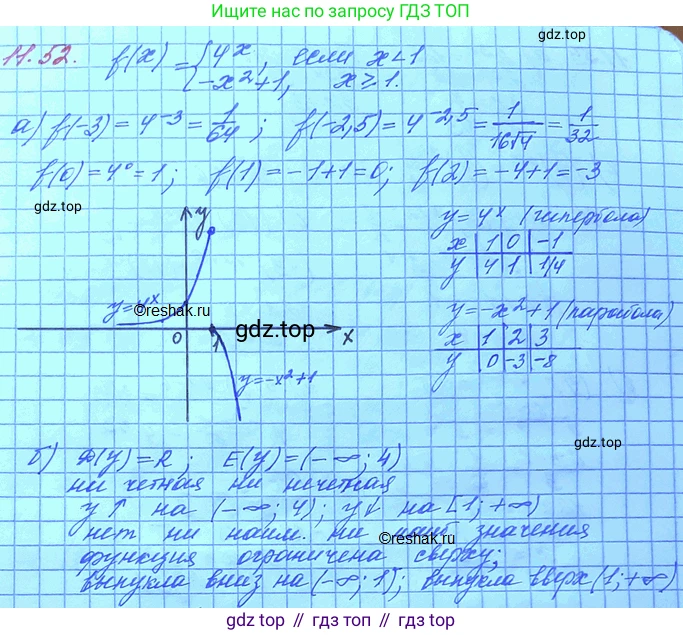 Ищите нас по запросу ГДЗ ТОП
11.52. f(x) = { 4^x, если x < 1
-x²+1, x ⩾ 1.
gdz.top
а) f(-3) = 4^-3 = 1/64; f(-2,5) = 4^-2,5 = 1/16√4 = 1/32
f(0) = 4° = 1; f(1) = -1+1 = 0; f(2) = -4+1 = -3
gdz.top
y = 4^x (гипербола)
x | 1 | 0 | -1
y | 4 | 1 | 1/4
y = -x²+1 (парабола)
x | 1 | 2 | 3
y | 0 | -3 | -8
y
y=4^x
©reshak.ru
gdz.top
0 1 x
y=-x²+1
gdz.top
б) D(y) = R; E(y) = (-∞; 4)
ни четная ни нечетная
y↑ на (-∞; 4); y↓ на [1; +∞)
нет ни наим. ни наиб значения
©reshak.ru
функция ограничена сверху;
выпукла вниз на (-∞; 1); выпукла вверх (1; +∞)
gdz.top // гдз.топ // гдз.top